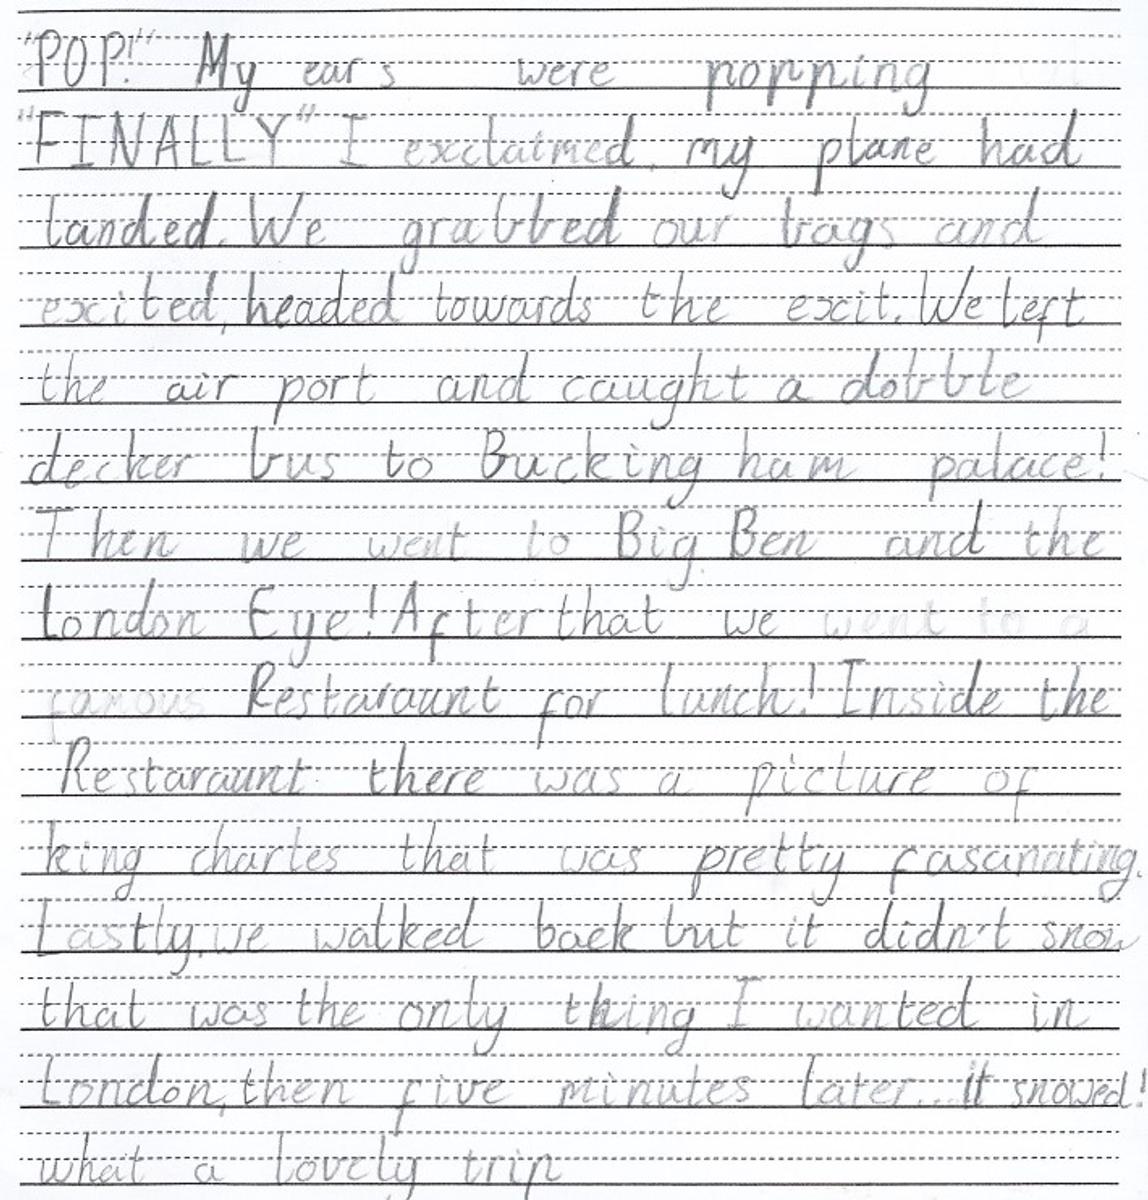 "POP!" My ears were popping
"FINALLY" I exclaimed, my plane had
landed. We grabbed our bags and
excited, headed towards the exit. We left
the air port and caught a dobble
decker bus to Bucking ham palace!
Then we went to Big Ben and the
London Eye! After that we went to a
famous Restaraunt for lunch! Inside the
Restaraunt there was a picture of
king charles that was pretty fascanating.
Lastly, we walked back but it didn't snow
that was the only thing I wanted in
London, then five minutes later... it snowed!
what a lovely trip